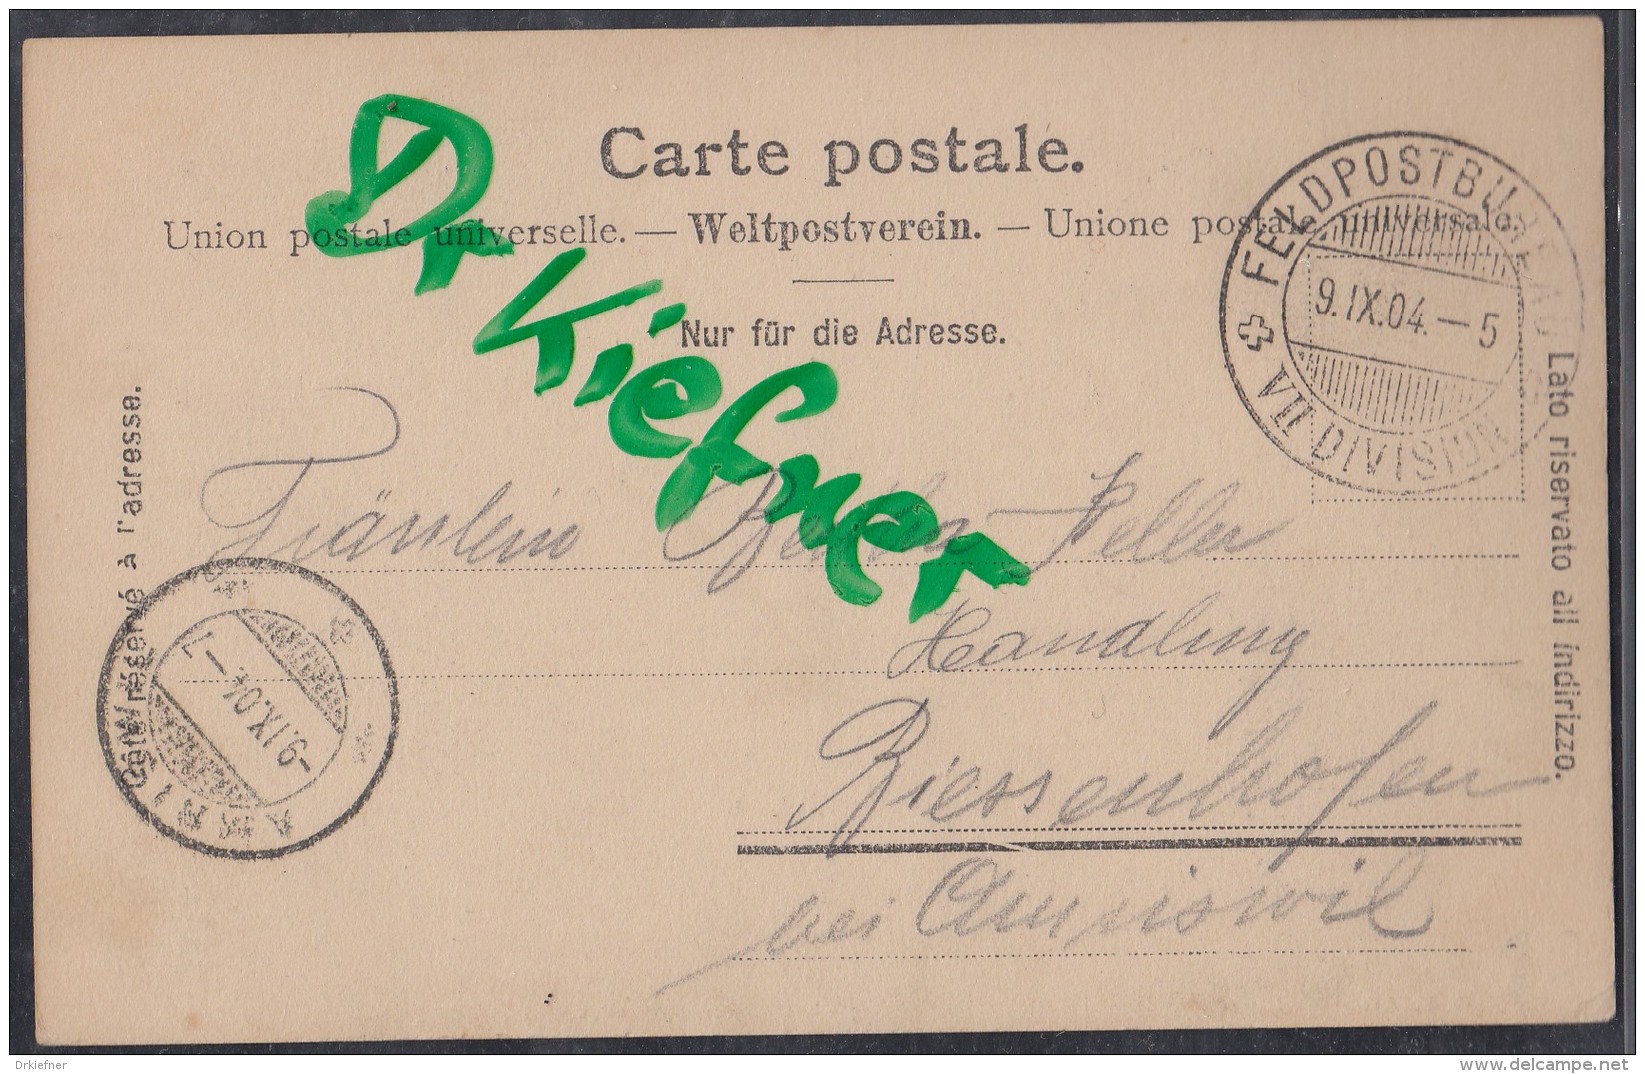 Carte postale.
Union postale universelle. — Weltpostverein. — Unione postale universale.
Nur für die Adresse.
Côté réservé à l'adresse.
Lato riservato all indirizzo.
FELDPOSTBUREAU
9.IX.04.—5
VII DIVISION
Dr Kiefner
Fräulein Bertha Keller
Handlung
Riessenhofen
bei Amriswil
-9.IX.04.-7
Drkiefner
delcampe.net